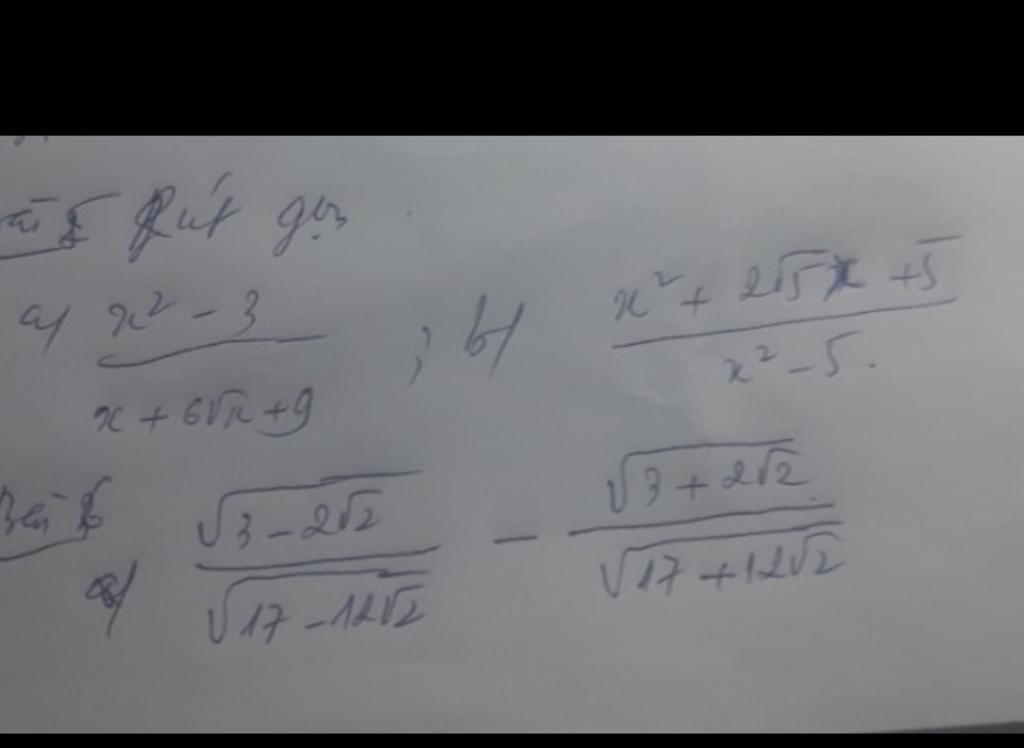 Bài 5 Rút gọn
a) (x² - 3)/(x + 6√x + 9) ; b) (x² + 2√5x + 5)/(x² - 5).
Bài 6
a) √(3 - 2√2)/√(17 - 12√2) - √(3 + 2√2)/√(17 + 12√2)